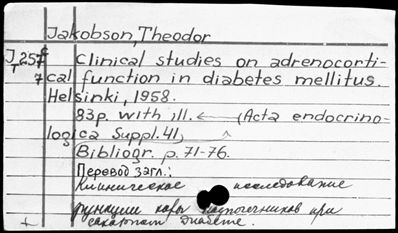 Jakobson, Theodor
J257 Clinical studies on adrenocorti-
7 cal function in diabetes mellitus.
Helsinki, 1958.
83p. with ill. (Acta endocrino-
logica Suppl. 41)
Bibliogr. p. 71-76.
Перевод загл.:
Клиническое исследование
функции коры надпочечников при
сахарном диабете.